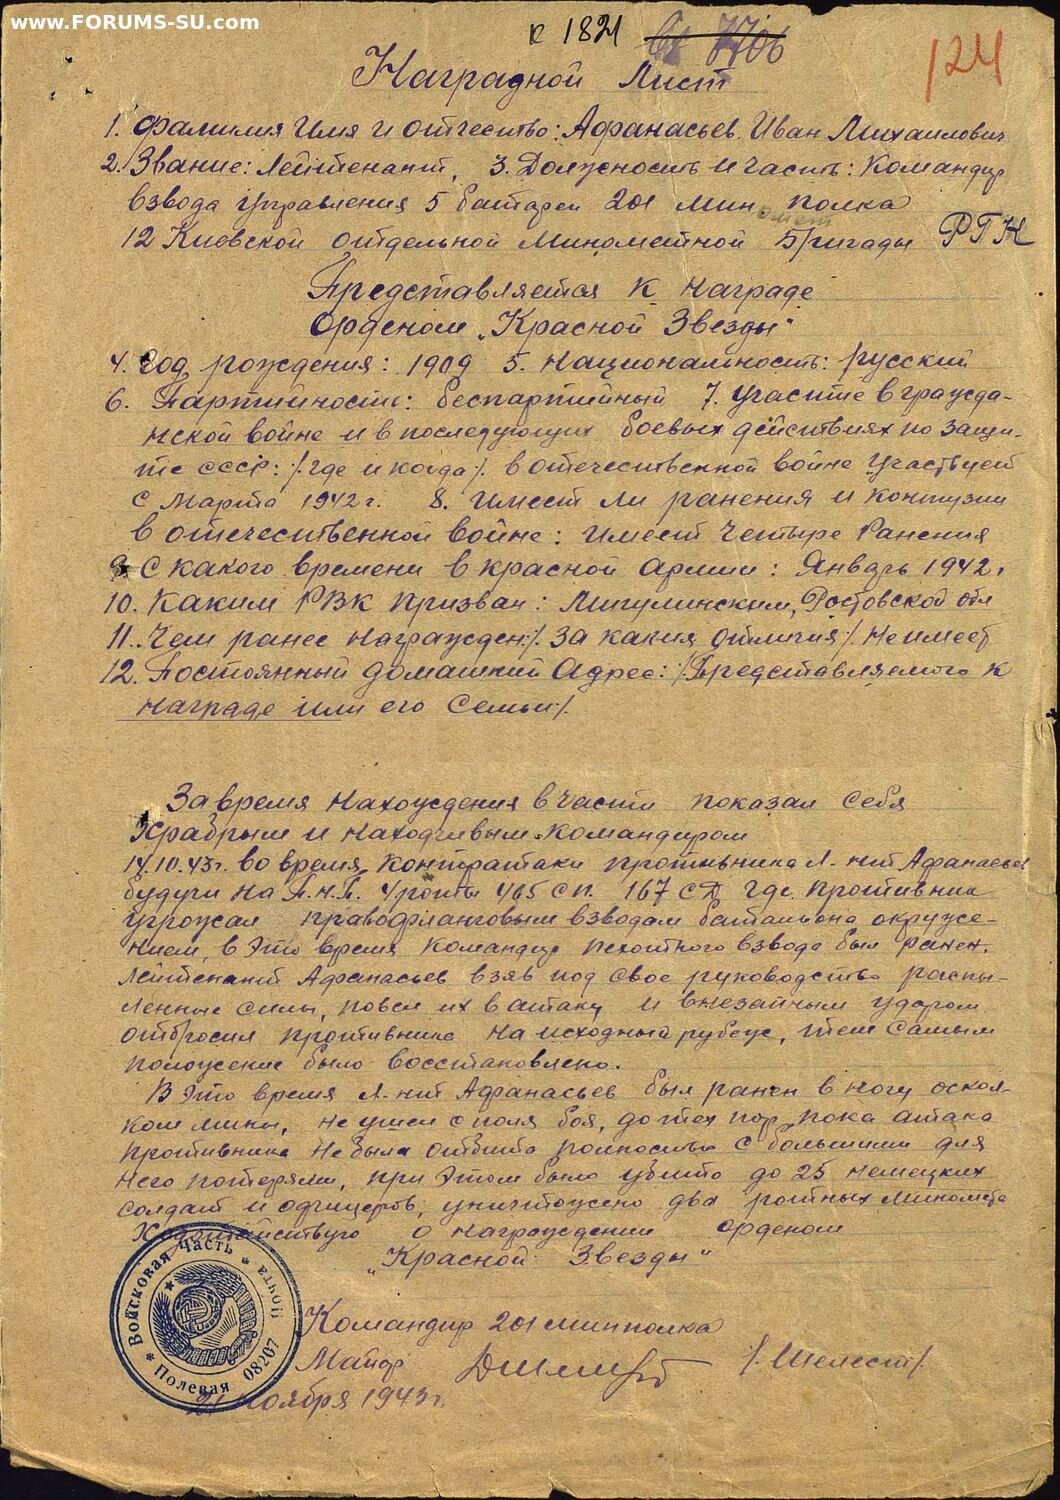 www.FORUMS-SU.com
к 1821
124
Наградной Лист
1. Фамилия Имя и отчество: Афанасьев Иван Михаилович
2. Звание: Лейтенант, 3. Должность и часть: Командир
взвода управления 5 батареи 201 мин полка
12 Киевской отдельной Минометной Бригады РГК
Представляется к награде
Орденом „Красной Звезды"
4. Год рождения: 1909 5. Национальность: русский
6. Партийность: беспартийный 7. участие в гражда-
нской войне и в последующих боевых действиях по защи-
те СССР: /.где и когда/. в отечественной войне участвует
с Марта 1942 г. 8. Имеет ли ранения и контузии
в отечественной войне: имеет четыре ранения
9. С какого времени в красной армии: Январь 1942 г
10. Каким РВК призван: Мигулинским, Ростовской обл
11. Чем ранее награжден:/. За какия отличия/. Не имеет
12. Постоянный домашний Адрес: /Представляемого к
награде или его Семьи:/.
За время нахождения в части показал себя
Храбрым и находчивым командиром
14.10.43г. во время контратаки противника л-нт Афанасьев
будучи на П.Н.П. 4 роты 465 СП. 167 СД где противник
угрожал правофланговым взводам батальона окруже-
нием, в это время командир пехотного взвода был ранен.
Лейтенант Афанасьев взяв под свое руководство распы-
ленные силы, повел их в атаку и внезапным ударом
отбросил противника на исходный рубеж, тем самым
положение было восстановлено.
В это время л-нт Афанасьев был ранен в ногу оскол-
ком мины, не ушел с поля боя, до тех пор пока атака
противника не была отбита полностью с большими для
него потерями, при этом было убито до 25 немецких
солдат и офицеров, уничтожено два ротных миномета
Ходатайствую о награждении орденом
„Красной Звезды"
Командир 201 минполка
Майор /. Шелест/.
21 ноября 1943 г.
Войсковая Часть
Полевая 08207 почта